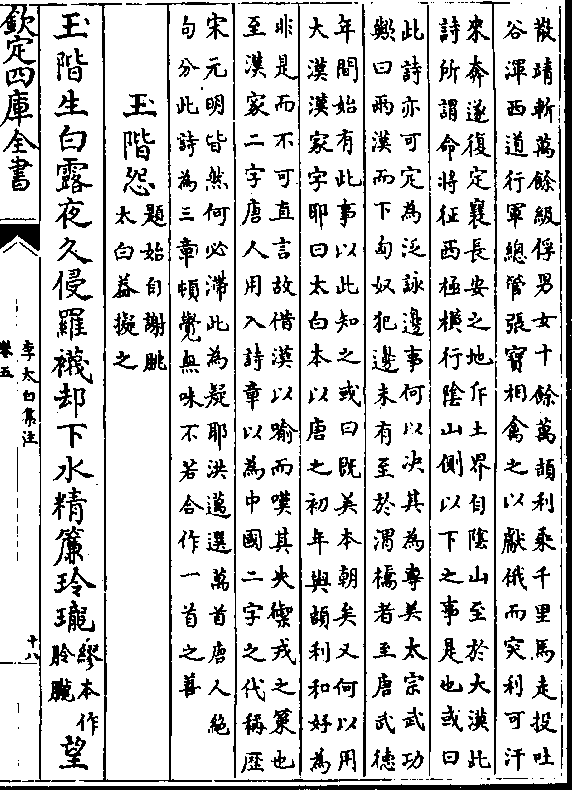 散靖斬萬餘級俘男女十餘萬頡利乘千里馬走投吐
谷渾西道行軍總管張寶相禽之以獻俄而突利可汗
來奔遂復定襄長安之地斥土界自陰山至於大漠此
詩所謂命將征西極橫行陰山側以下之事是也或曰
此詩亦可定為泛詠邊事何以決其為專美太宗武功
歟曰兩漢而下匈奴犯邊未有至於渭橋者至唐武德
年間始有此事以此知之或曰既美本朝矣又何以用
大漢漢家字耶曰太白本以唐之初年與頡利和好為
非是而不可直言故借漢以喻而嘆其失禦戎之策也
至漢家二字唐人用入詩章以為中國二字之代稱歷
宋元明皆然何必滯此為疑耶洪邁選萬首唐人絶
句分此詩為三章頓覺無味不若合作一首之善
玉階怨
題始自謝朓
太白益擬之
玉階生白露夜久侵羅襪却下水精簾玲瓏
繆本作
朎朧
望
欽定四庫全書
李太白集注
卷五
十八